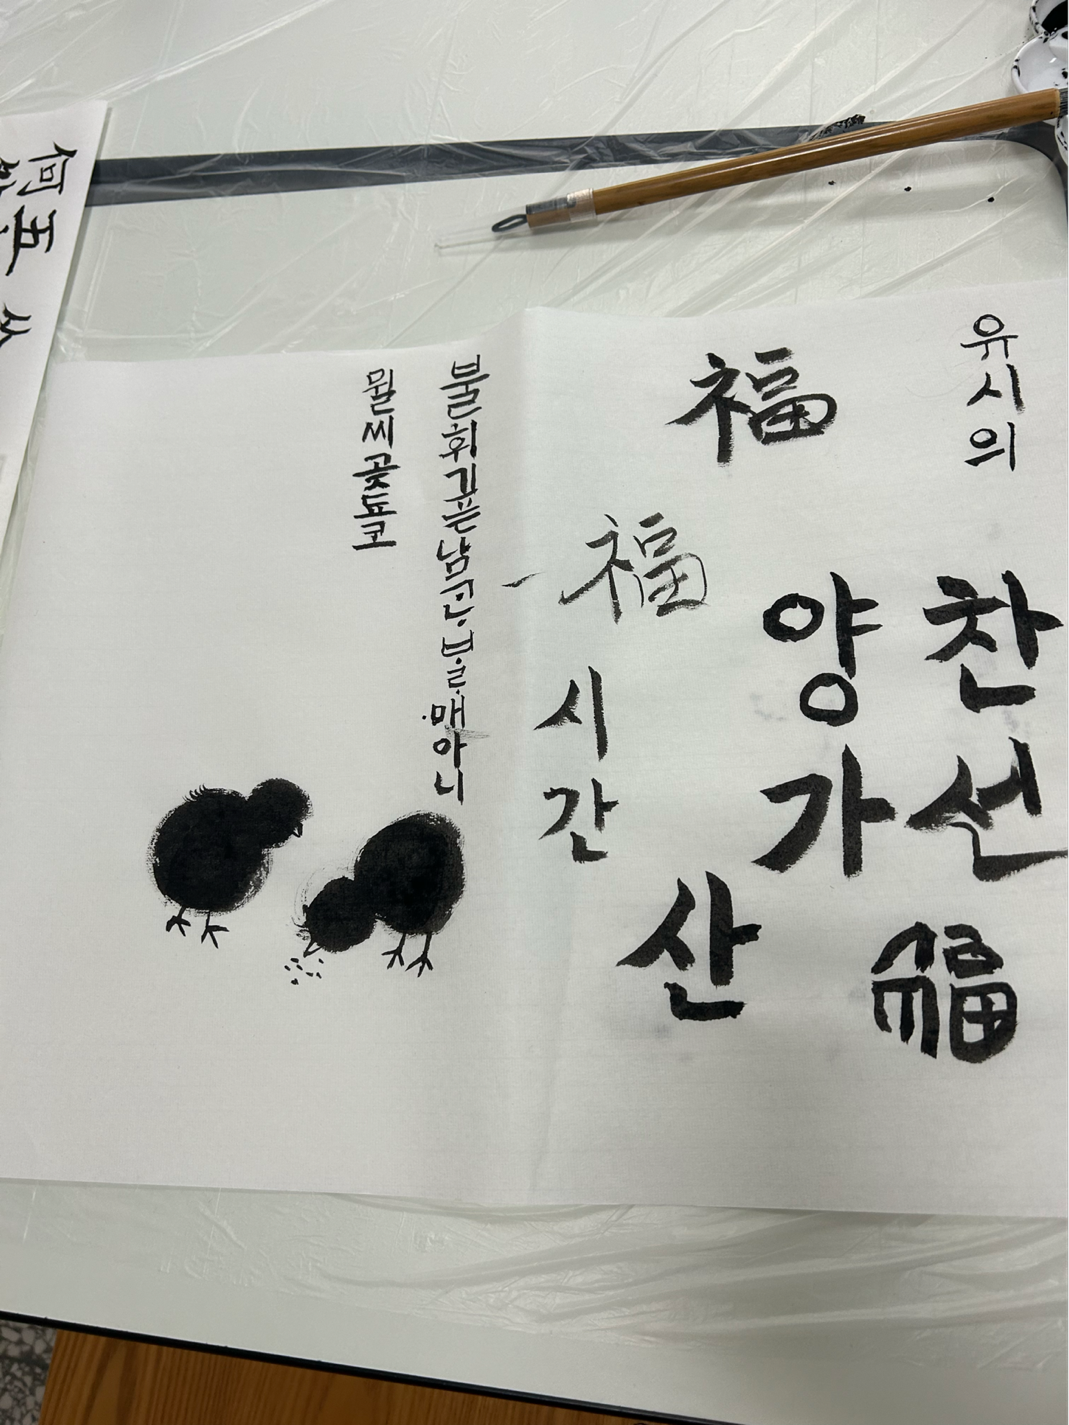 유시의
찬선
福
양가
福
산
福
시간
불휘기픈남ᄀᆞᆫᄇᆞᄅᆞ매아니
뮐씨곶됴코
何
五